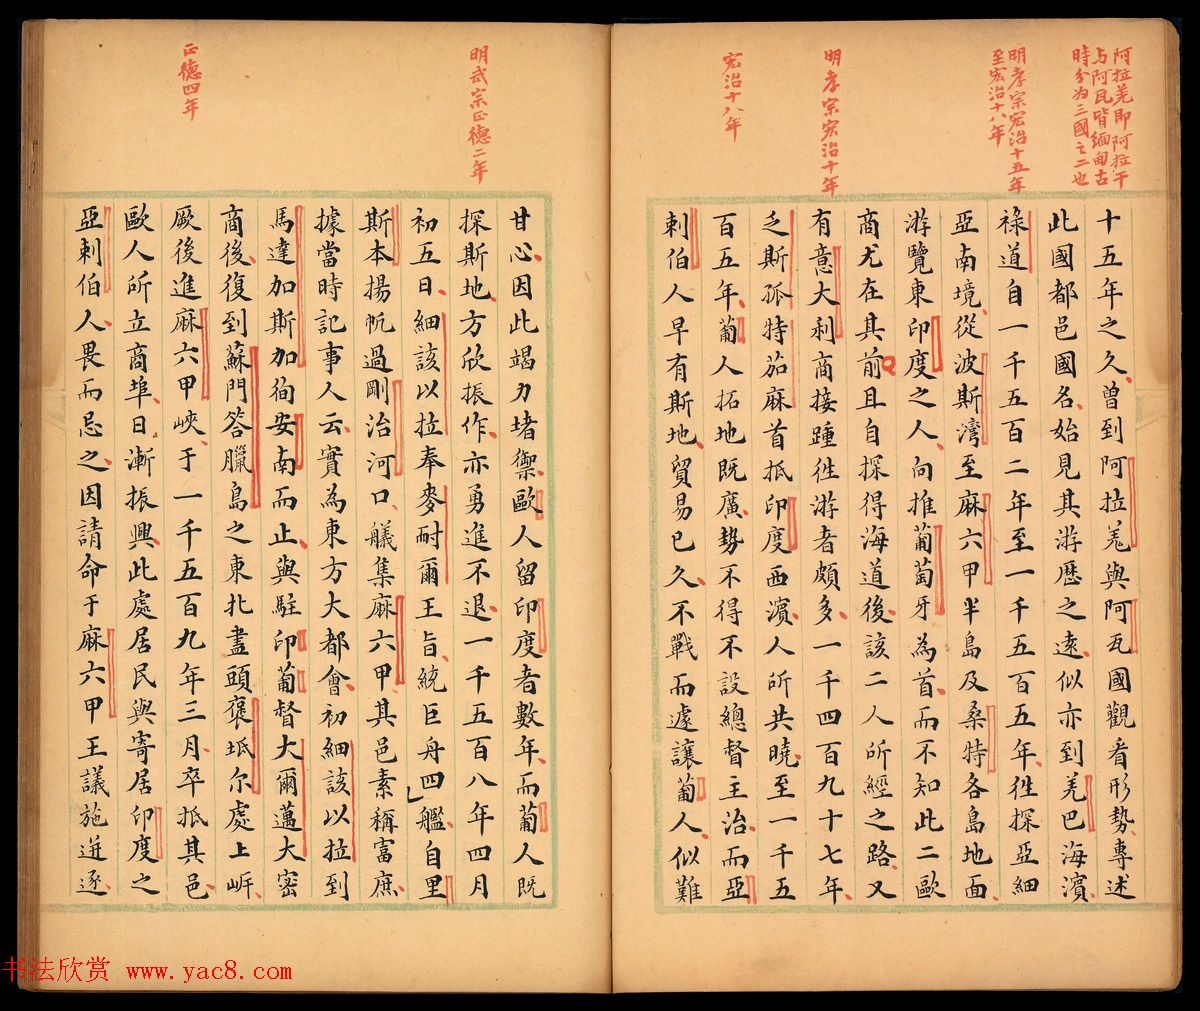 阿拉羌即阿拉干
与阿瓦皆緬甸古
時分为三國之二也
明孝宗宏治十五年
至宏治十八年
明孝宗宏治十年
宏治十八年
十五年之久、曾到阿拉羌與阿瓦國觀看形勢、專述
此國都邑國名、始見其游歷之遠、似亦到羌巴海濱、
祿道自一千五百二年至一千五百五年、往探亞細
亞南境、從波斯灣至麻六甲半島及桑特各島地面、
游覽東印度之人、向推葡萄牙為首、而不知此二歐
商尤在其前、且自探得海道後、該二人所經之路、又
有意大利商接踵往游者頗多、一千四百九十七年、
乏斯孤特茄麻首抵印度西濱、人所共曉、至一千五
百五年、葡人拓地既廣、勢不得不設總督主治、而亞
剌伯人早有斯地、貿易已久、不戰而遽讓葡人、似難
明武宗正德二年
正德四年
甘心、因此竭力堵禦、歐人留印度者數年、而葡人既
探斯地、方欣振作、亦勇進不退、一千五百八年四月
初五日、細該以拉奉麥耐爾王旨、統巨舟四艦、自里
斯本揚帆過剛治河口、艤集麻六甲、其邑素稱富庶、
據當時記事人云、實為東方大都會、初細該以拉到
馬達加斯加徇安南而止、與駐印葡督大爾邁大密
商後、復到蘇門答臘島之東北盡頭褒坻尔處上岍、
厥後進麻六甲峽、于一千五百九年三月卒抵其邑、
歐人所立商埠、日漸振興、此處居民與寄居印度之
亞剌伯人、畏而忌之、因請命于麻六甲王議施迸逐、
书法欣赏 www.yac8.com